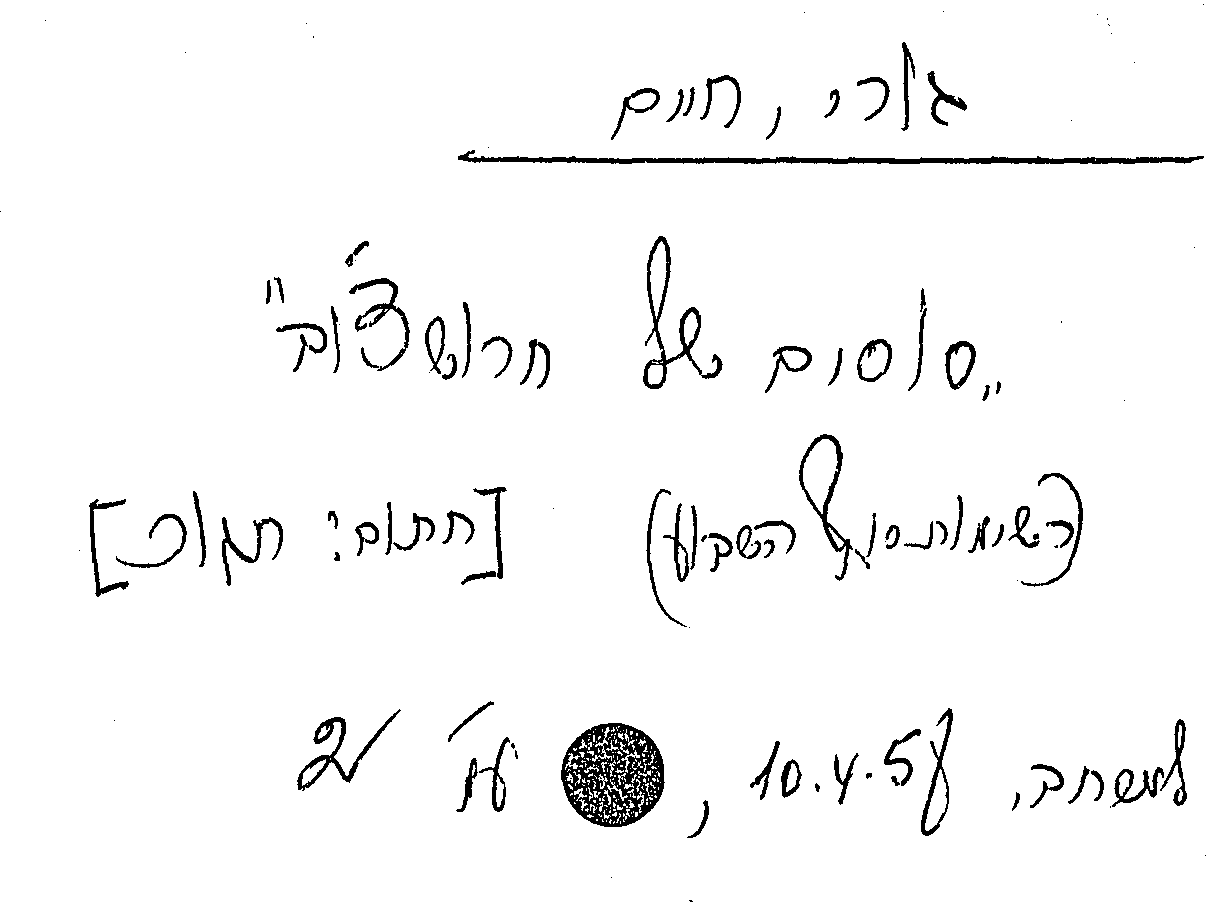 גורי, חיים
"סוסים של חרושצ'וב"
(רשימות סוף השבוע) [חתום: חגור]
למרחב, 10.4.58, עמ' 2